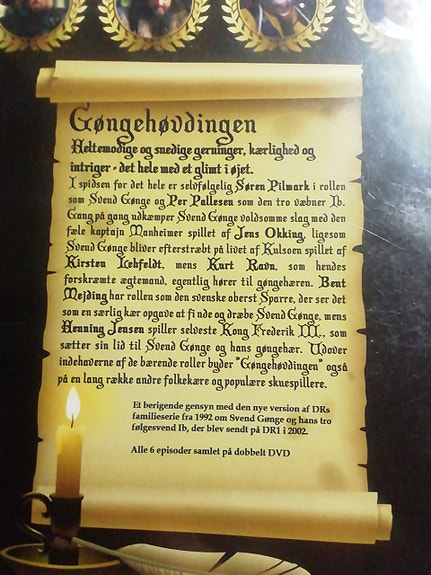 Gøngehøvdingen
Heltemodige og snedige gerninger, kærlighed og
intriger - det hele med et glimt i øjet.
I spidsen for det hele er selvfølgelig Søren Pilmark i rollen
som Svend Gønge og Per Pallesen som den tro væbner Ib.
Gang på gang udkæmper Svend Gønge voldsomme slag med den
fæle kaptajn Manheimer spillet af Jens Okking, ligesom
Svend Gønge bliver efterstræbt på livet af Kulsoen spillet af
Kirsten Lehfeldt, mens Kurt Ravn, som hendes
forskræmte ægtemand, egentlig hører til gøngehæren. Bent
Mejding har rollen som den svenske oberst Sparre, der ser det
som en særlig kær opgave at finde og dræbe Svend Gønge, mens
Henning Jensen spiller selveste Kong Frederik III., som
sætter sin lid til Svend Gønge og hans gøngehær. Udover
indehaverne af de bærende roller byder "Gøngehøvdingen" også
på en lang række andre folkekære og populære skuespillere.
Et berigende gensyn med den nye version af DRs
familieserie fra 1992 om Svend Gønge og hans tro
følgesvend Ib, der blev sendt på DR1 i 2002.
Alle 6 episoder samlet på dobbelt DVD